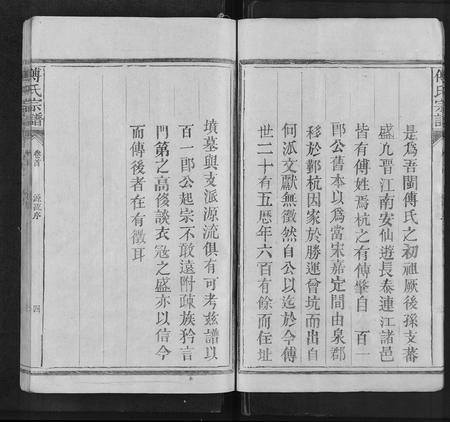 傅氏宗譜
是為吾閩傅氏之初祖厥後孫支蕃
盛凡晉江南安仙遊長泰連江諸邑
皆有傅姓焉杭之有傅肇自 百一
郎公舊本以為當宋嘉定間由泉郡
移於鄞杭因家於勝運曾坑而出自
何派文獻無徵然自公以迄於今傅
世二十有五歷年六百有餘而住址
墳墓與支派源流俱有可考茲譜以
百一郎公起宗不敢遠附疎族矜言
門第之高俊談衣冠之盛亦以信今
而傳後者在有徵耳
傅氏宗譜
卷首
源流序
四